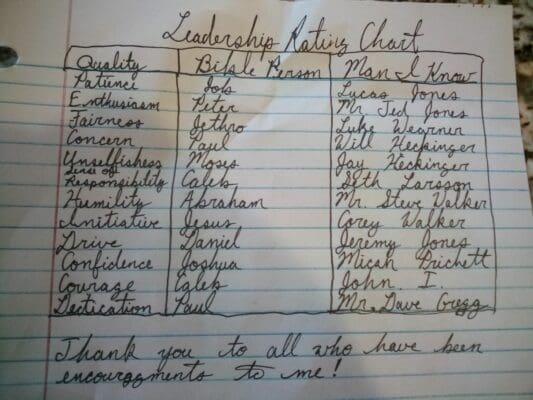 Leadership Rating Chart
Quality Bible Person Man I Know
Patience Job Lucas Jones
Enthusiasm Peter Mr. Jed Jones
Fairness Jethro Luke
Concern Paul Will Heckinger
Unselfishness Moses Jay Heckinger
Sense of Responsibility Caleb Seth Larsson
Humility Abraham Mr. Steve Walker
Initiative Jesus Corey Walker
Drive Daniel Jeremy Jones
Confidence Joshua Micah Prichett
Courage Caleb John I.
Dectication Paul Mr. Dave Gregg
Thank you to all who have been
encouragments to me!